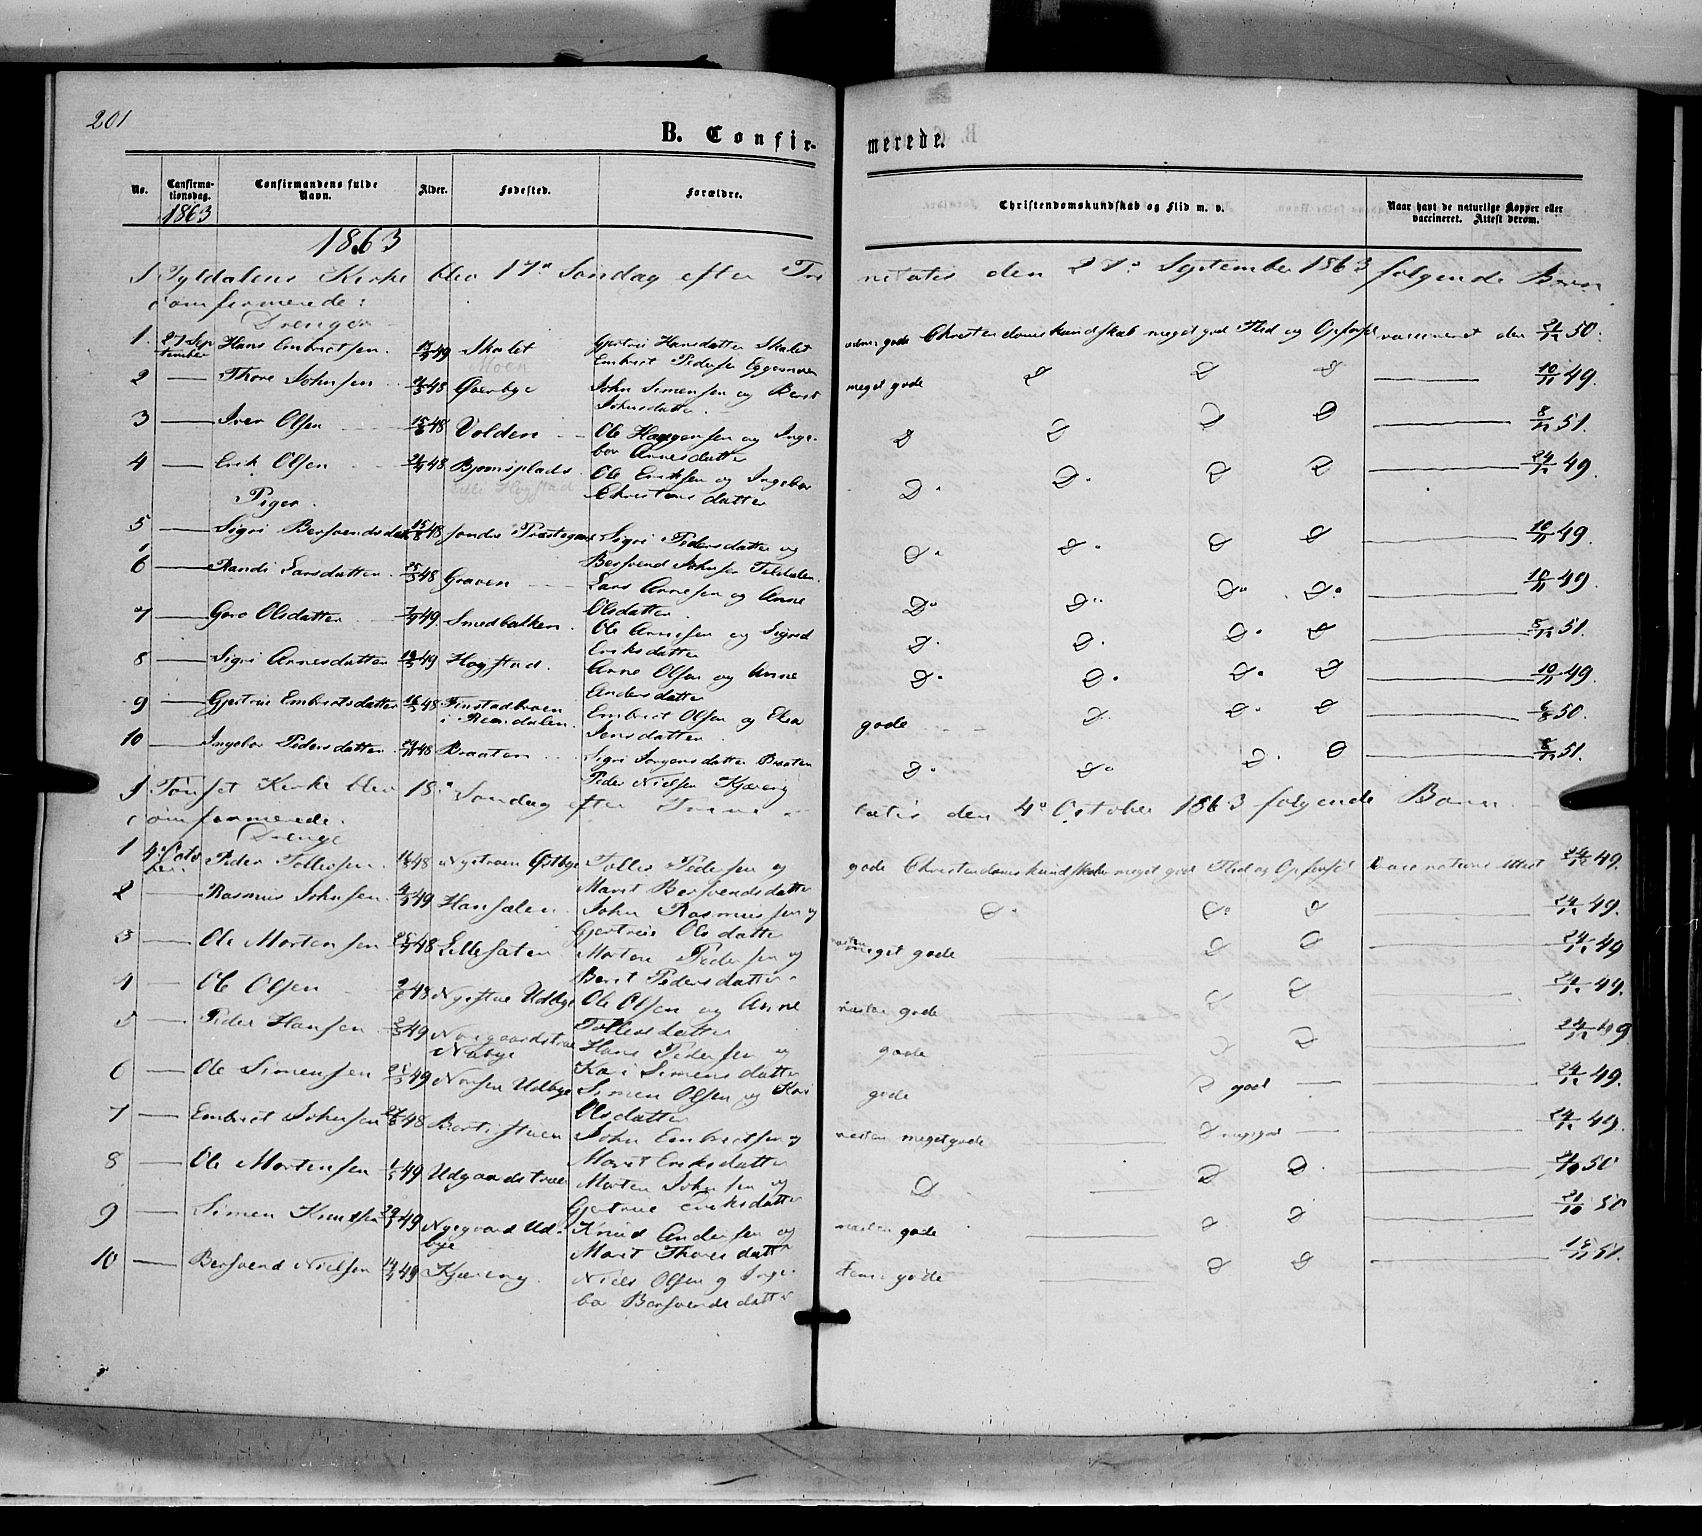 201
B. Confir-
merede.
No.
Confirma-
tionsdag.
1863
Confirmandens fulde
Navn.
Alder.
Fødested.
Forældre.
Christendomskundskab og Flid m. v.
Naar havt de naturlige Kopper eller
vaccineret. Attest derom.
1863
I Tyldalens Kirke blev 17de Søndag efter Tri
nitatis den 27de September 1863 følgende Børn
confirmerede:
Drenge
1. 27 Sep Hans Embretsen. 49 Skalet Gjertrue Hansdatter Skalet
tember Moen Embret Pedersen Eggesmoen
gode Christendomskundskab meget god Flid og Opførsel vaccineret den 21/12 50.
2 — Thore Johnsen 48 Øverbye John Simensen og Berit
Johnsdatter
meget gode D D D — 10/11 49.
3 — Iver Olsen 48 Volden Ole Haagensen og Inge-
bor Arnesdatter
D D D D — 8/12 51.
4 — Erik Olsen 48 Bjørnsplads Ole Eriksen og Ingebor
Lille Hogstad Christensdatter
D D D D — 24/11 49.
Piger.
5 — Sigri Bersvendsdatt 15/8 48 søndre Præstegaard Sigri Pedersdatter og
Bersvend Johnsen Tildalen.
D D D D — 10/11 49.
6 — Randi Larsdatter 48 Graven Lars Arnesen og Anne
Olsdatter
D D D D — 10/11 49.
7 — Goro Olsdatter 49. Smedbakken. Ole Arnesen og Sigrid
Eriksdatter
D D D D — 8/12 51.
8 — Sigri Arnesdatter 49 Hogstad. Arne Olsen og Anne
Andersdatter
D D D D — 10/11 49.
9 — Gjertrue Embretsdatter 48 Finstadhaven Embret Olsen og Elea
i Rendalen. Jensdatter
gode D D D — 6/8 50.
10 — Ingebor Pedersdatter 48 Braaten Sigri Jørgensdatter Braaten
Peder Nielsen Kjæreng
D D D D — 8/12 51.
I Tønset Kirke blev 18de Søndag efter Trini
tatis den 4de October 1863 følgende Børn
confirmerede.
Drenge
1 4de Octo Peder Tollefsen. 48 Nystuen Østbye Tollef Pedersen og
ber. Marit Bersvendsdatter
gode Christendomskundskab meget god Flid og Opførsel vaccinations Attest 24/11 49.
2 — Rasmus Johnsen. 49 Hansælen John Rasmussen og
Gjertrue Olsdatter
D D D 24/11 49.
3 — Ole Mortensen 48 Lillesæten Morten Pedersen og
Berit Pedersdatter
næsten meget gode D D — 24/11 49
4 — Ole Olsen 48 Nystue Udbye Ole Olsen og Anne
Tollefsdatter
næsten gode D D — 24/11 49.
5 — Peder Hansen 49 Norgaardstue Hans Pedersen og
Kari Simensdatter
gode D D — 24/11 49
6 — Ole Simensen 49 Udbye Simen Olsen og Kari
Olsdatter
gode D god — 24/11 49.
7 — Embret Johnsen 48 John Embretsen og
Marit Eriksdatter
næsten meget gode — D meget god — 24/11 49.
8 — Ole Mortensen 49 Udgaardstrøen Morten Johnsen og
Gjertrue Eriksdatter
D — D D — 21/10 50
9 — Simen Knudsen 49 Nygaard Ud- Knud Andersen og
bye Marit Thoresdatter
næsten gode — D D — 21/10 50
10 — Bersvend Nielsen 49 Kjæreng. Niels Olsen og Inge-
bor Bersvendsdatter
Temml. gode — D D — 51.